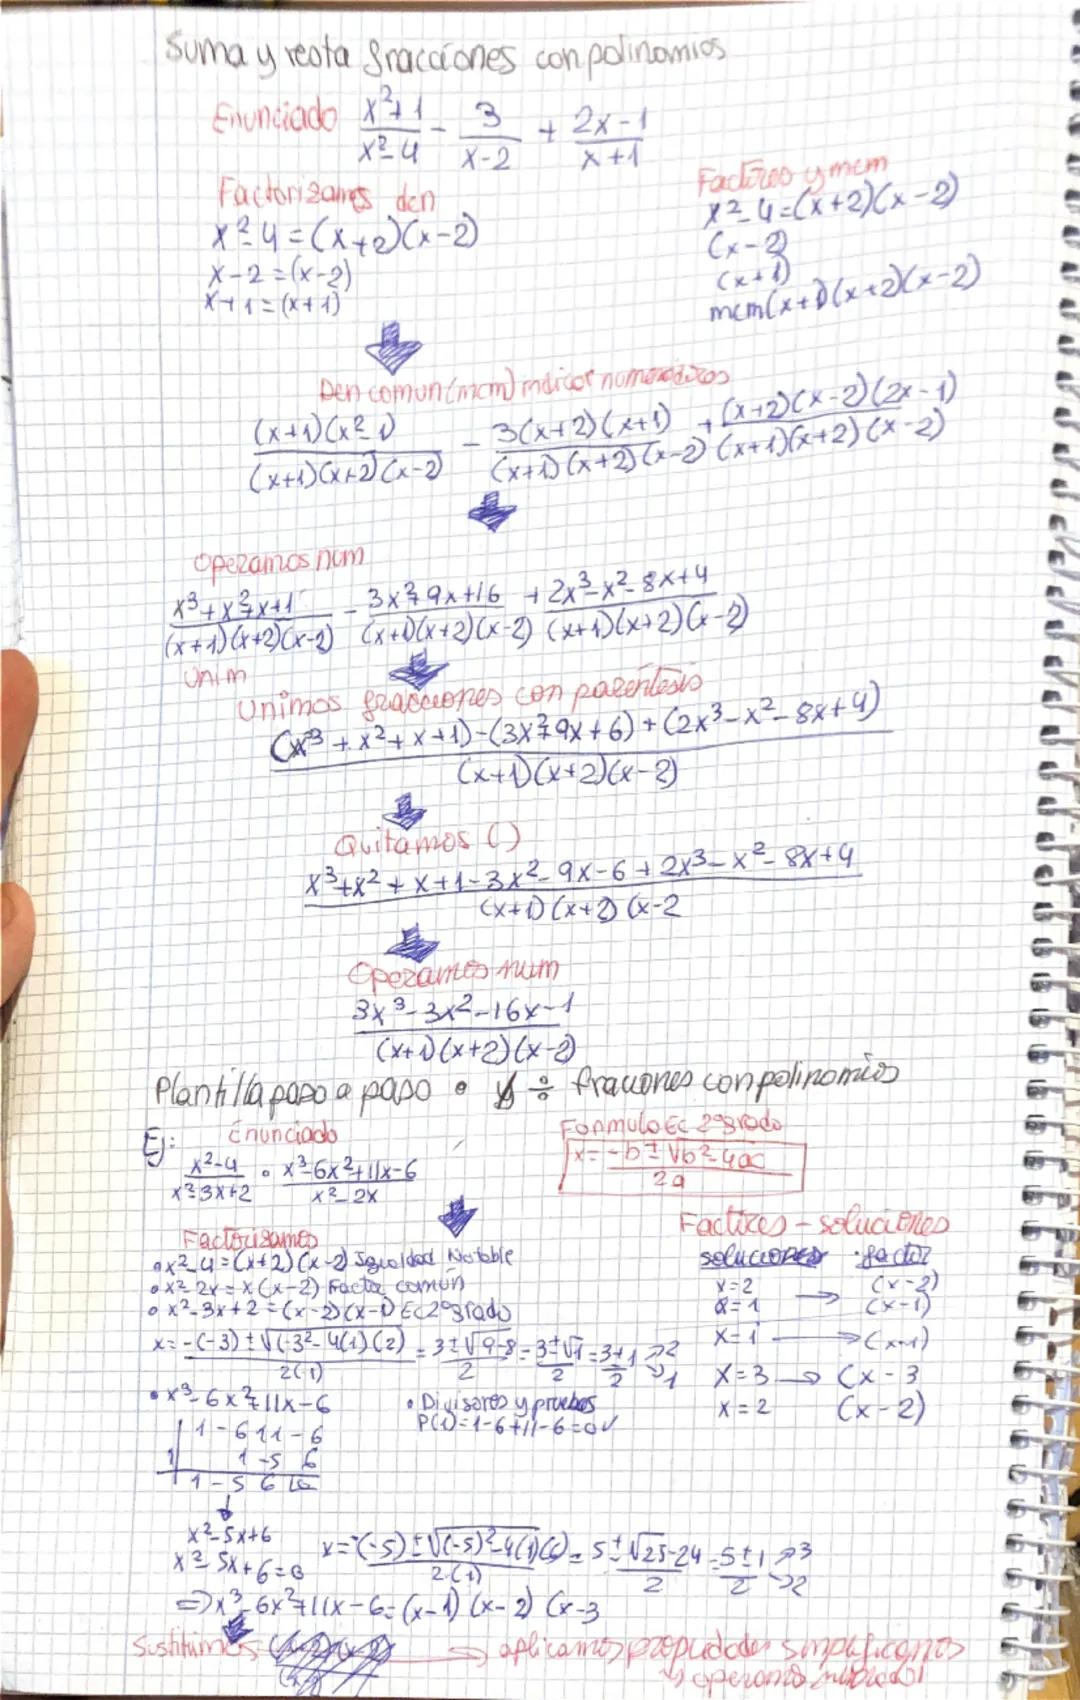 Suma y resta fracciones con polinomios
Enunciado (x²+1)/(x²-4) - 3/(x-2) + (2x-1)/(x+1)
Factorizamos den
x²-4=(x+2)(x-2)
x-2=(x-2)
x+1=(x+1)
Factores y mcm
x²-4=(x+2)(x-2)
(x-2)
(x+1)
mcm(x+1)(x+2)(x-2)
Den comun (mcm) indicar numeradores
(x+1)(x²-1)/(x+1)(x+2)(x-2) - 3(x+2)(x+1)/(x+1)(x+2)(x-2) + (x+2)(x-2)(2x-1)/(x+1)(x+2)(x-2)
Operamos num
(x³+x²+x+1)/(x+1)(x+2)(x-2) - (3x²+9x+16)/(x+1)(x+2)(x-2) + (2x³-x²-8x+4)/(x+1)(x+2)(x-2)
Unim
Unimos fracciones con paréntesis
(x³+x²+x+1)-(3x²+9x+6)+(2x³-x²-8x+4)
(x+1)(x+2)(x-2)
Quitamos ()
x³+x²+x+1-3x²-9x-6+2x³-x²-8x+4
(x+1)(x+2)(x-2
Operamos num
3x³-3x²-16x-1
(x+1)(x+2)(x-2)
Plantilla paso a paso • y ÷ fracciones con polinomios
Ej: Enunciado
(x²-4)/(x²-3x+2) • (x³-6x²+11x-6)/(x²-2x)
Formula Ec 2º grado
x= (-b±√b²-4ac)/2a
Factorizamos
• x²-4=(x+2)(x-2) Igualdad Notable
• x²-2x=x(x-2) Factor común
• x²-3x+2=(x-2)(x-1) Ec 2º grado
x= (-(-3)±√(-3²-4(1)(2))/2(1) = (3±√9-8)/2 = (3±√1)/2 = (3+1)/2 → 2 → 1
• x³-6x²+11x-6
1 -6 11 -6
1 1 -5 6
1 -5 6 0
• Divisores y pruebas
P(1)=1-6+11-6=0✓
Factores - soluciones
soluciones · factor
x=2 → (x-2)
x=1 (x-1)
x=1 → (x-1)
x=3 → (x-3
x=2 (x-2)
x²-5x+6
x²-5x+6=0
x= (-(-5)±√(-5)²-4(1)(6))/2·(1) = (5±√25-24)/2 = (5±1)/2 → 3 → 2
⇒ x³-6x²+11x-6=(x-1)(x-2)(x-3
Sustituimos → aplicamos propiedades simplificamos
↳ operamos